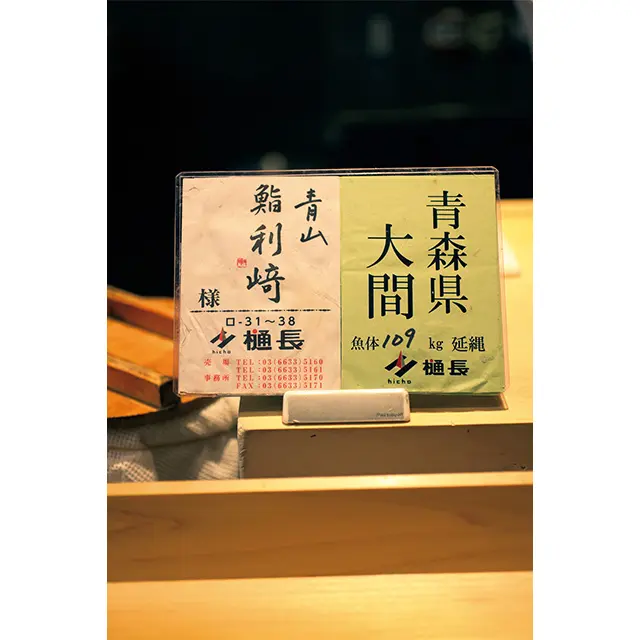 青山
鮨利﨑
様
ロ-31〜38
樋長
hicho
売場 TEL:03(6633)5160
TEL:03(6633)5161
事務所 TEL:03(6633)5170
FAX:03(6633)5171
青森県
大間
魚体109kg 延縄
樋長
hicho